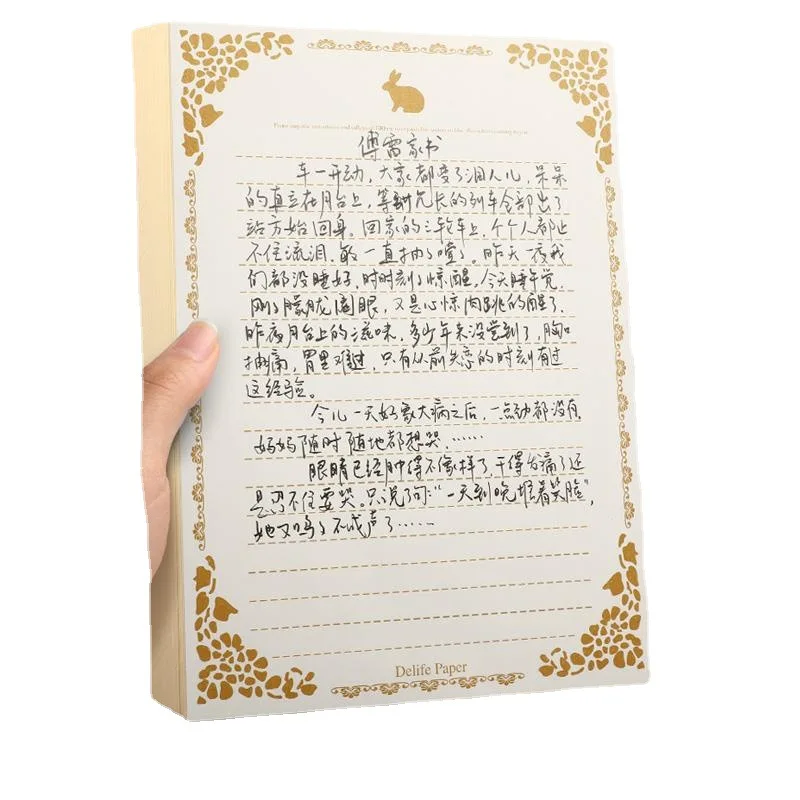 傅雷家书
车一开动，大家都变了泪人儿，呆呆
的直立在月台上，等到冗长的列车全部出了
站方始回身。回家的三轮车上，个个人都止
不住流泪，敏一直抽々噎々。昨天一夜我
们都没睡好，时时刻々惊醒，今天睡午觉，
刚々朦胧阖眼，又是心惊肉跳的醒了，
昨夜月台上的滋味，多少年来没尝到了，胸口
抽痛，胃里难过，只有从前失恋的时刻有过
这经验。
今儿一天好象大病之后，一点劲都没有，
妈妈随时随地都想哭，……
眼睛已经肿得不像样了，干得发痛了还
是忍不住要哭。只说了句：“一天到晚堆着笑脸”，
她又呜咽不成声了……
Delife Paper